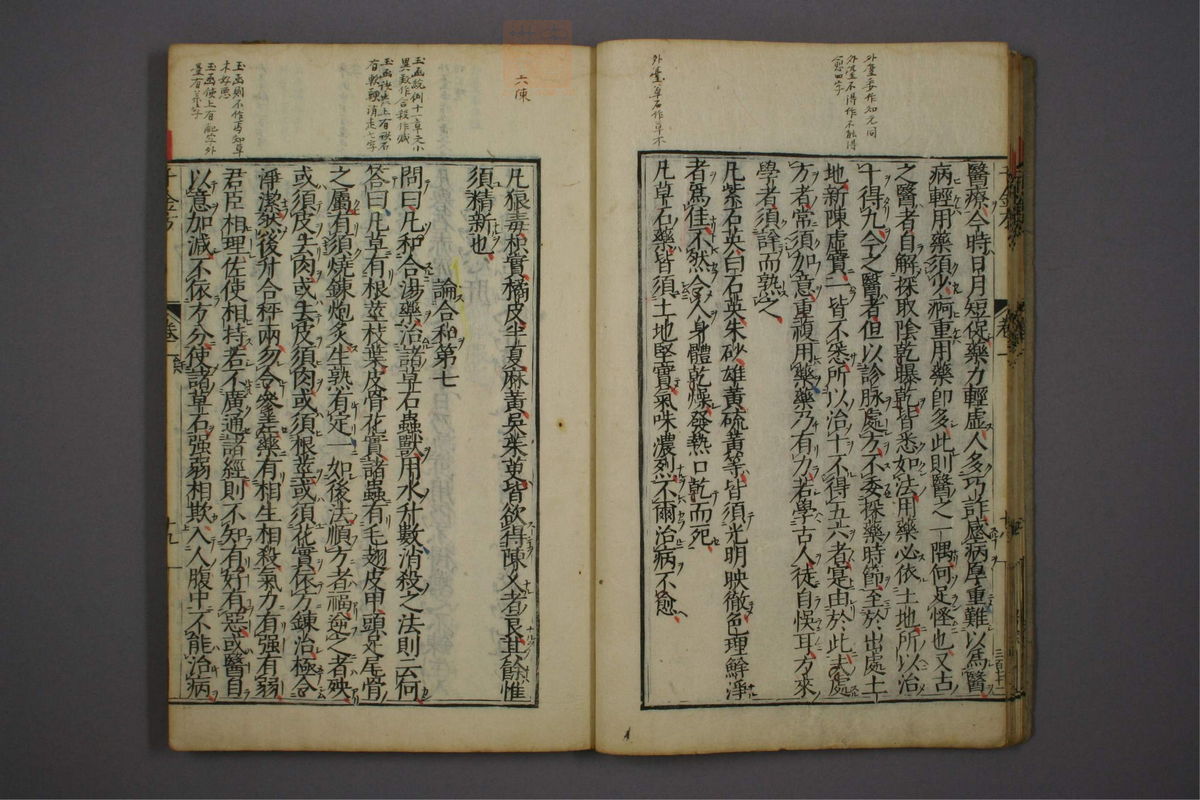 醫療今時日月短促藥力輕虛人多巧詐感病厚重難以爲醫
病輕用藥須少病重用藥即多此則醫之一隅何足怪也又古
之醫者自解採取陰乾曝乾皆悉如法用藥必依土地所以治
十得九今之醫者但以診脉處方不委採藥時節至於出處土
地新陳虛實一皆不悉所以治十不得五六者寔由於此夫處
方者常須加意重複用藥藥乃有力若學古人徒自悞耳方來
學者須詳而熟之
凡紫石英白石英朱砂雄黃硫黃等皆須光明映徹色理鮮淨
者爲佳不然令人身體乾燥發熱口乾而死
凡草石藥皆須土地堅實氣味濃烈不爾治病不愈
外臺委作知光同
外臺不得作不能得
愈四字
外臺草石作草木
千金方
卷一
十九
凡狼毒枳實橘皮半夏麻黃吳茱萸皆欲得陳久者良其餘惟
須精新也
論合和第七
問曰凡和合湯藥治諸草石蟲獸用水升數消殺之法則云何
答曰凡草有根莖枝葉皮骨花實諸蟲有毛翅皮甲頭足尾骨
之屬有須燒鍊炮炙生熟有定一如後法順方者福逆之者殃
或須皮去肉或去皮須肉或須根莖或須花實依方鍊治極令
淨潔然後升合秤兩勿令參差藥有相生相殺氣力有强有弱
君臣相理佐使相持若不廣通諸經則不知有好有惡或醫自
以意加減不依方分使諸草石强弱相欺入人腹中不能治病
六陳